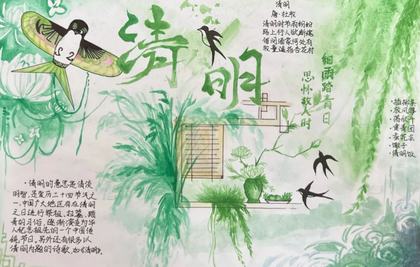 清明
清明
唐·杜牧
清明时节雨纷纷
路上行人欲断魂
借问酒家何处有
牧童遥指杏花村
细雨踏青日
思怀故人时
·放风筝
·荡秋千
·青团
·馓子
·清明的意思是清淡
明智,是农历二十四节气之
一,中国广大地区有在清明
之日进行祭祖、扫墓、踏
青的习俗,逐渐演变为华
人纪念祖先的一个中国传
统节日,另外还有很多以
清明为题的诗歌,如《清明》。